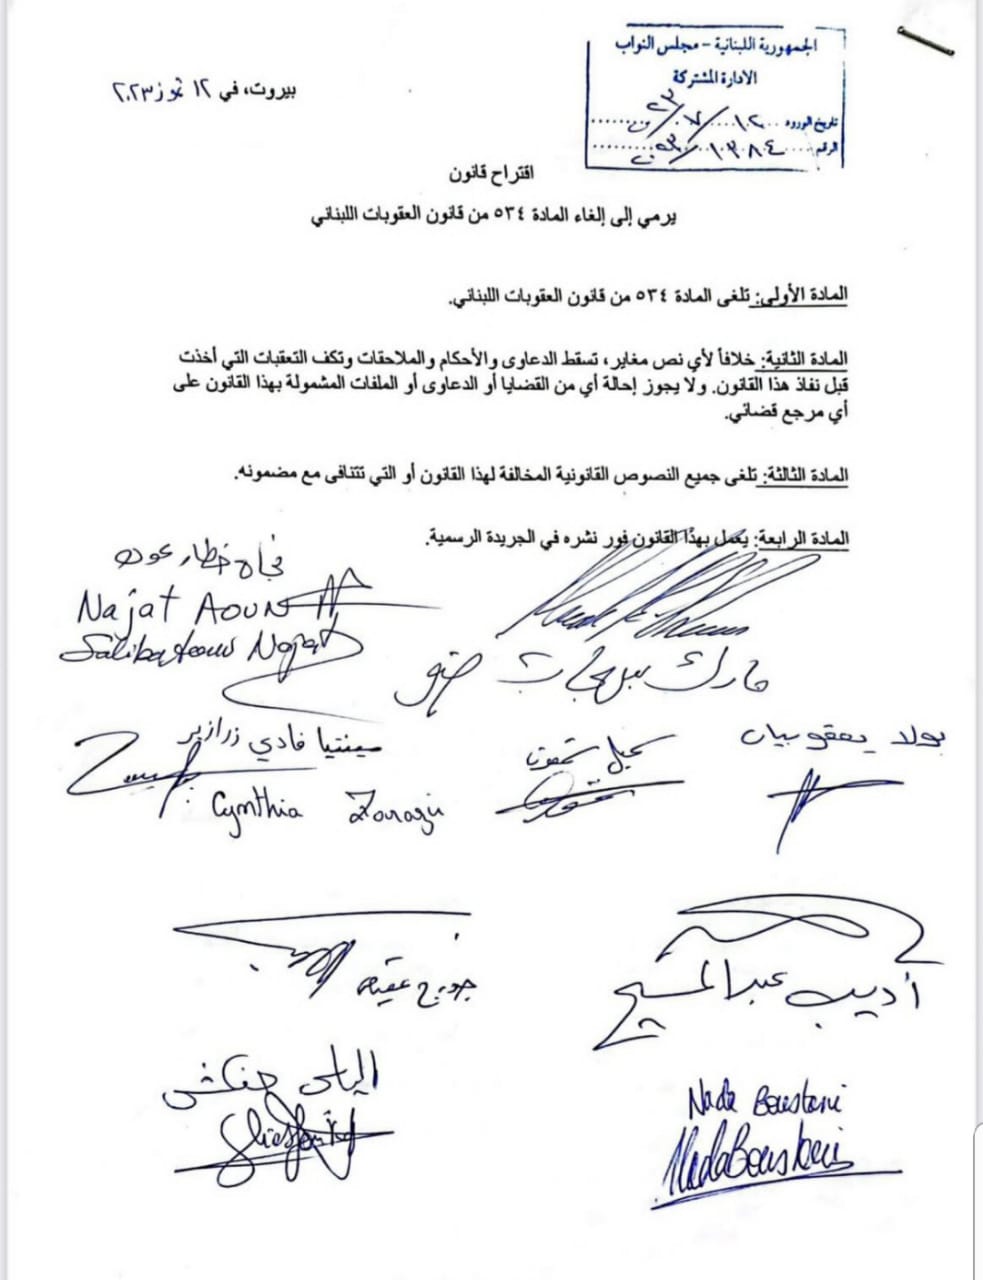 الجمهورية اللبنانية - مجلس النواب
الادارة المشتركة
تاريخ الورود ١٢/٧/٢٣
الرقم ١٠٣٨٤/٢٣
بيروت، في ١٢ تموز ٢٠٢٣
اقتراح قانون
يرمي إلى إلغاء المادة ٥٣٤ من قانون العقوبات اللبناني
المادة الأولى: تلغى المادة ٥٣٤ من قانون العقوبات اللبناني.
المادة الثانية: خلافاً لأي نص مغاير، تسقط الدعاوى والأحكام والملاحقات وتكف التعقبات التي أخذت
قبل نفاذ هذا القانون. ولا يجوز إحالة أي من القضايا أو الدعاوى أو الملفات المشمولة بهذا القانون على
أي مرجع قضائي.
المادة الثالثة: تلغى جميع النصوص القانونية المخالفة لهذا القانون أو التي تتنافى مع مضمونه.
المادة الرابعة: يُعمل بهذا القانون فور نشره في الجريدة الرسمية.
نجاة خطار عون
Najat AOUN
Saliba Aoun Najat
مارك بهجات ضو
بولا يعقوبيان
كميل شمعون
سينتيا فادي زرازير
Cynthia Zarazir
أديب عبد المسيح
جورج عقيص
الياس حنكش
Nada Boustani
Nada Boustani